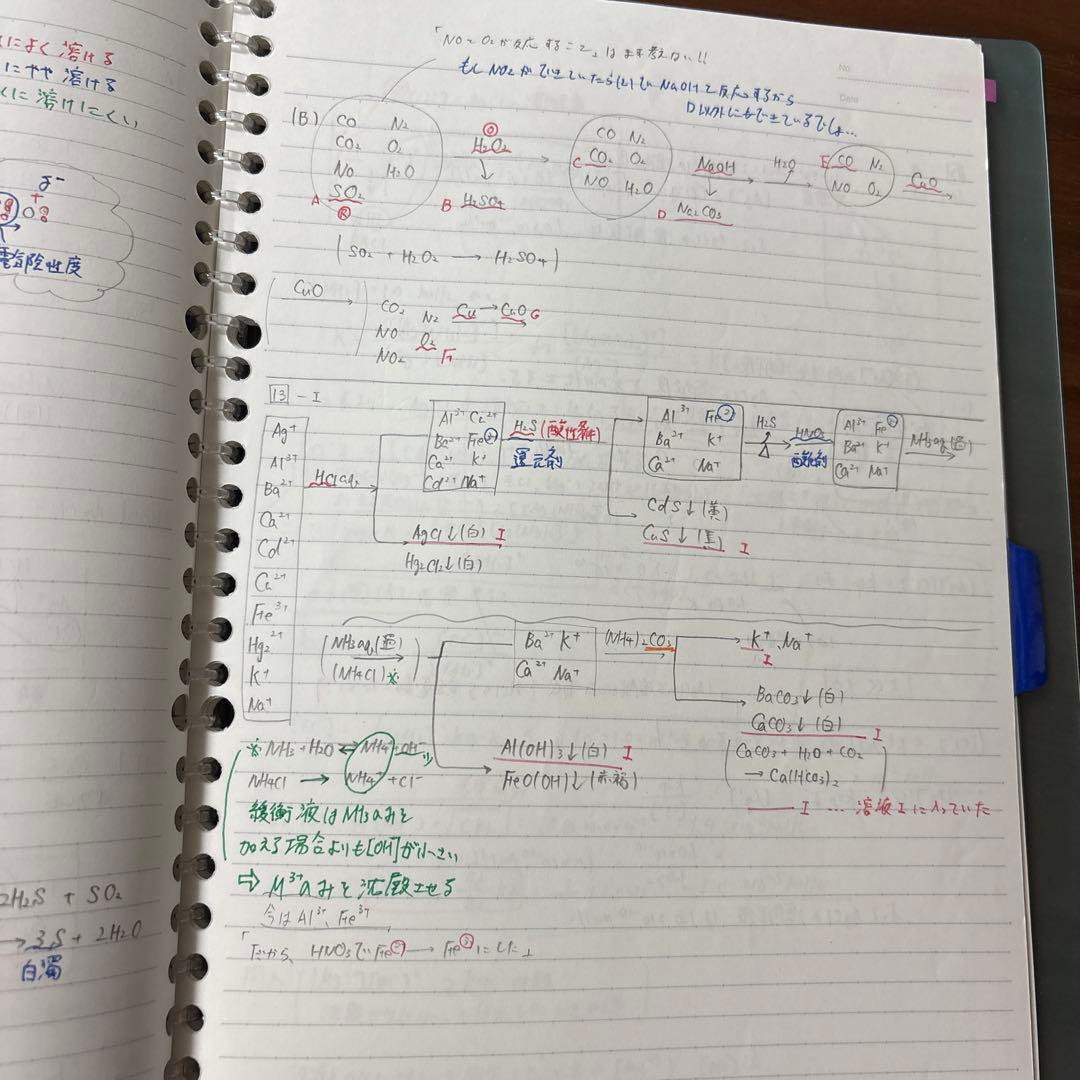 によく溶ける
にやや溶ける
に溶けにくい
電気陰性度
2H₂S + SO₂
→ 3S + 2H₂O
白濁
No.
Date
「NOとO₂が反応すること」はまず考えない!!
もしNO₂ができていたら(2)でNaOHと反応するから
D以外にもできているでしょ…
(B) CO N₂
CO₂ O₂
NO H₂O
A SO₂
Ⓡ
Ⓞ
H₂O₂
↓
B H₂SO₄
CO N₂
C CO₂ O₂
NO H₂O
NaOH
↓
D Na₂CO₃
H₂O
E CO N₂
NO O₂
CuO
(SO₂ + H₂O₂ → H₂SO₄)
CuO
CO₂ N₂
NO O₂ F
NO₂
Cu → CuO G
13 - I
Ag⁺
Al³⁺
Ba²⁺
Ca²⁺
Cd²⁺
Cu²⁺
Fe³⁺
Hg₂²⁺
K⁺
Na⁺
HClaq
Al³⁺ Cu²⁺
Ba²⁺ Fe③
Ca²⁺ K⁺
Cd²⁺ Na⁺
AgCl↓(白) I
Hg₂Cl₂↓(白)
H₂S(酸性条件)
還元剤
Al³⁺ Fe②
Ba²⁺ K⁺
Ca²⁺ Na⁺
CdS↓(黄)
CuS↓(黒) I
H₂S
HNO₃
酸化剤
Al³⁺ Fe③
Ba²⁺ K⁺
Ca²⁺ Na⁺
NH₃aq(過)
(NH₃aq(過)
(NH₄Cl)※)
Ba²⁺ K⁺
Ca²⁺ Na⁺
(NH₄)₂CO₃
K⁺、Na⁺
I
BaCO₃↓(白)
CaCO₃↓(白) I
(CaCO₃ + H₂O + CO₂
→ Ca(HCO₃)₂)
Al(OH)₃↓(白) I
FeO(OH)↓(赤褐)
I … 溶液Iに入っていた
※NH₃ + H₂O ⇄ NH₄⁺ + OH⁻
NH₄Cl → NH₄⁺ + Cl⁻
緩衝液はNH₃のみを
加える場合よりも[OH⁻]が小さい
⇨ M³⁺のみを沈殿させる
今はAl³⁺、Fe³⁺
「だから、HNO₃でFe② → Fe③にした」